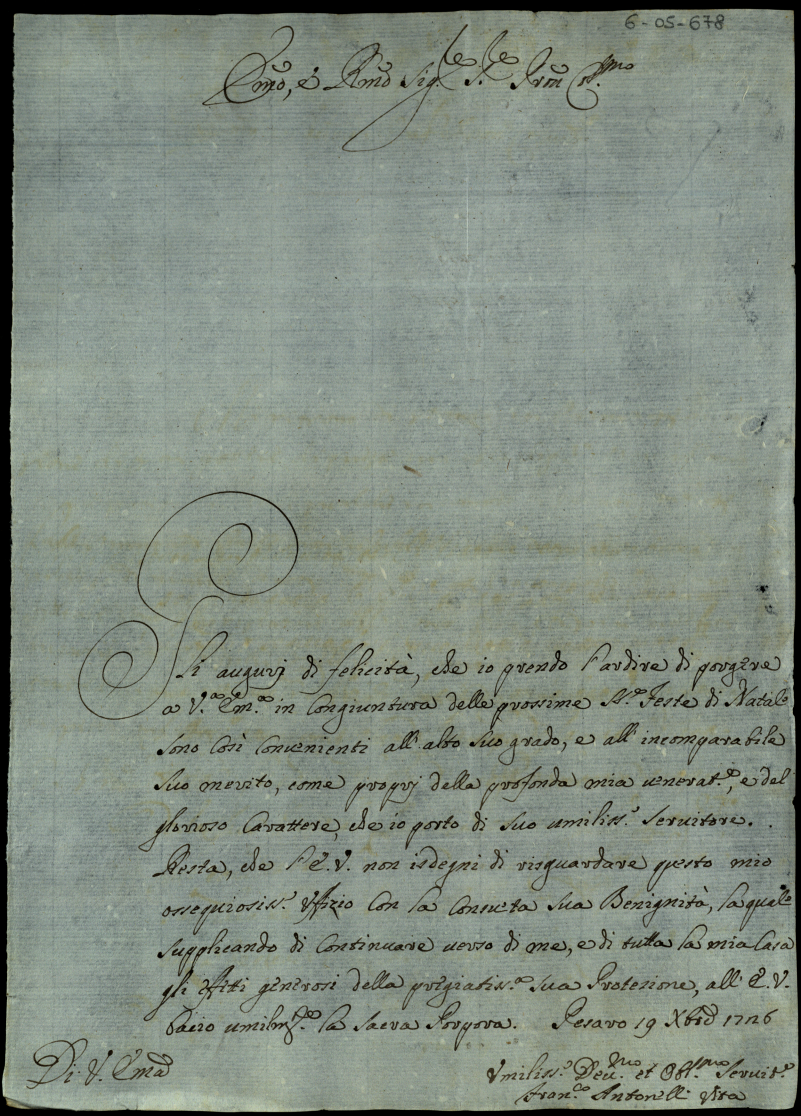 6-05-678
Emo, e Rmo Sig.re S.re Prõn Col.mo
Gli augurj di felicità, che io prendo l'ardire di porgere
a V.a Em.a in congiuntura delle prossime S.te Feste di Natale
sono così convenienti all'alto suo grado, e all'incomparabile
suo merito, come proprj della profonda mia venerat.e, e del
glorioso Carattere, che io porto di suo umiliss.o servitore.
Resta, che l'E.V. non isdegni di risguardare questo mio
ossequiosiss.o Uffizio con la consueta sua Benignità, la quale
supplicando di continuare verso di me, e di tutta la mia Casa
gli effetti generosi della pregiatiss.a sua Protezione, all'E.V.
bacio umilm.te la Sacra Porpora. Pesaro 19 Xbre 1726
Di V. Emã
Umiliss.o Dev.mo et Obl.mo Servit.e
Fran.co Antonelli